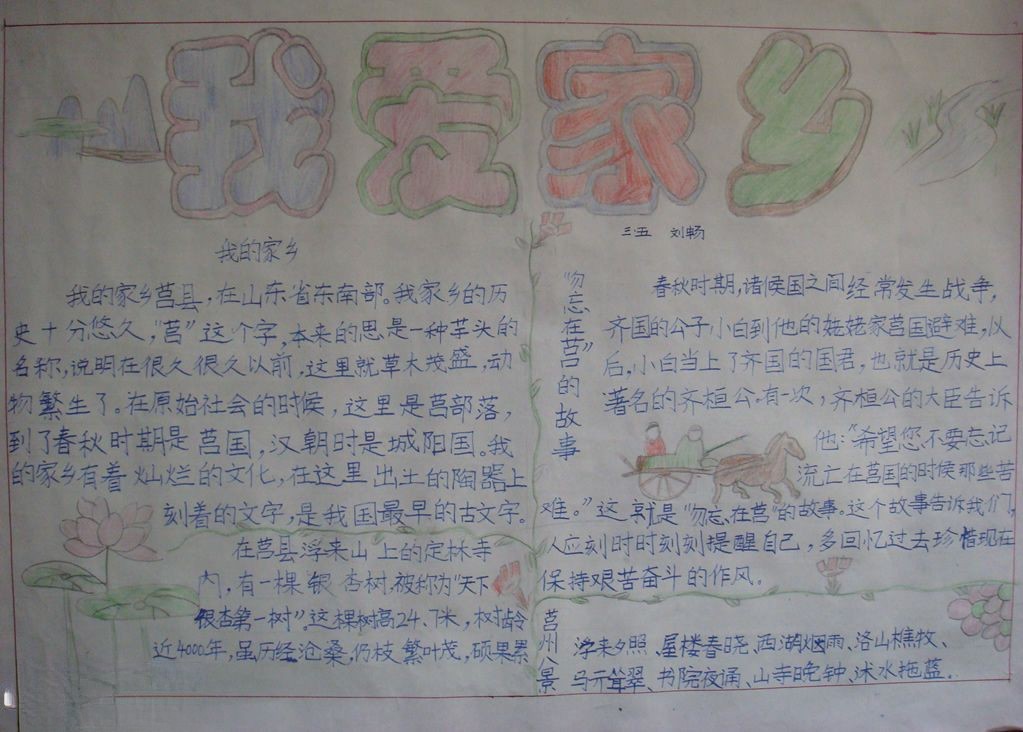 我爱家乡
三·五 刘畅
我的家乡
我的家乡莒县,在山东省东南部。我家乡的历
史十分悠久,“莒”这个字,本来的思是一种芋头的
名称,说明在很久很久以前,这里就草木茂盛,动
物繁生了。在原始社会的时候,这里是莒部落,
到了春秋时期是莒国,汉朝时是城阳国。我
的家乡有着灿烂的文化,在这里出土的陶器上
刻着的文字,是我国最早的古文字。
在莒县浮来山上的定林寺
内,有一棵银杏树,被称为“天下
银杏第一树”。这棵树高24.7米,树龄
近4000年,虽历经沧桑,仍枝繁叶茂,硕果累
“勿忘在莒”的故事
春秋时期,诸侯国之间经常发生战争,
齐国的公子小白到他的姥姥家莒国避难,以
后,小白当上了齐国的国君,也就是历史上
著名的齐桓公.有一次,齐桓公的大臣告诉
他:“希望您不要忘记
流亡在莒国的时候那些苦
难。”这就是“勿忘在莒”的故事。这个故事告诉我们,
人应刻时时刻刻提醒自己,多回忆过去珍惜现在
保持艰苦奋斗的作风。
莒州八景
浮来夕照、屋楼春晓、西湖烟雨、洛山樵牧、
马亓耸翠、书院夜诵、山寺晚钟、沭水拖蓝.